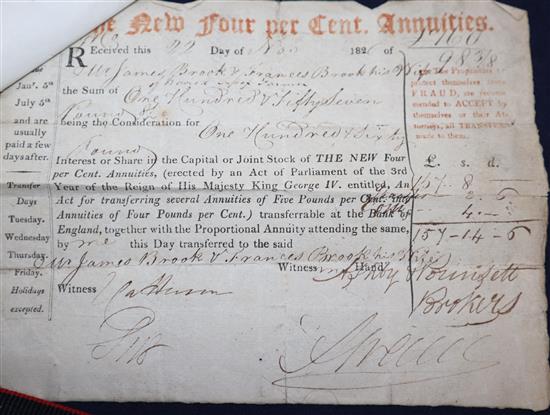 The New Four per Cent. Annuities.
£160
98 3/8
Received this 22 Day of Nov 182
Mr James Brook & Frances Brook his Wife
the Sum of
One Hundred & Fifty Seven
Pound
being the Consideration for
One Hundred & Sixty
Pound
Interest or Share in the Capital or Joint Stock of THE NEW Four
per Cent. Annuities, (erected by an Act of Parliament of the 3rd
Year of the Reign of His Majesty King George IV. entitled, An
Act for transferring several Annuities of Five Pounds per Cent. into
Annuities of Four Pounds per Cent.) transferrable at the Bank of
England, together with the Proportional Annuity attending the same,
by me this Day transferred to the said
Mr James Brook & Frances Brook his Wife
Witness my Hand
Witness
are
Jany. 5th
July 5th
and are
usually
paid a few
days after.
Transfer
Days
Tuesday.
Wednesday
Thursday.
Friday.
Holidays
excepted.
The Proprietors
protect themselves from
FRAUD, are recom-
mended to ACCEPT by
themselves or their At-
torneys, all TRANSFERS
made to them.
£. s. d.
157 - 8
- 4. -
157 - 14 - 6
Brokers